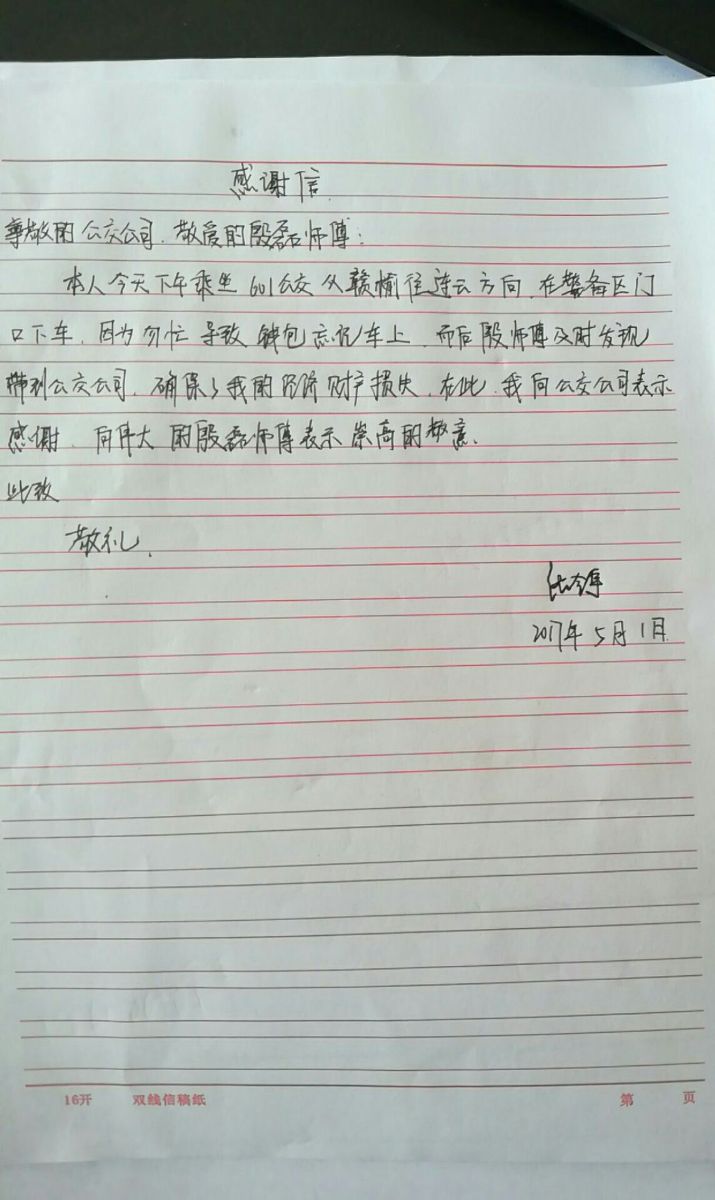 感谢信
尊敬的公交公司、敬爱的殷磊师傅：
本人今天下午乘坐601公交从赣榆往连云方向，在警备区门
口下车，因为匆忙导致钱包忘记车上，而后殷师傅及时发现
带到公交公司，确保了我的经济财产损失，在此，我向公交公司表示
感谢，向伟大的殷磊师傅表示崇高的敬意。
此致
敬礼，
2017年5月1日
16开 双线信稿纸 第 页